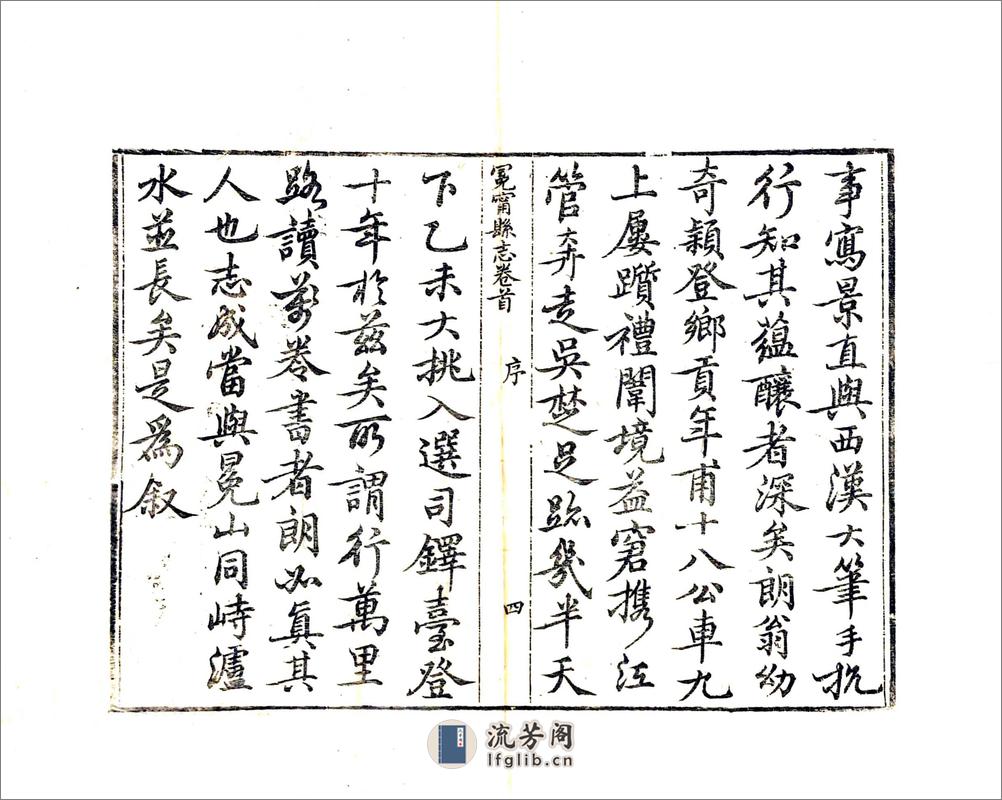 事寫景直與西漢大筆手抗
行知其蘊釀者深矣朗翁幼
奇穎登鄉貢年甫十八公車九
上屢躓禮闈境益窘携江
管奔走吳楚足跡幾半天
冕甯縣志卷首
序
四
下乙未大挑入選司鐸臺登
十年於茲矣所謂行萬里
路讀萬卷書者朗如真其
人也志成當與冕山同峙瀘
水並長矣是為叙
流芳阁
lfglib.cn